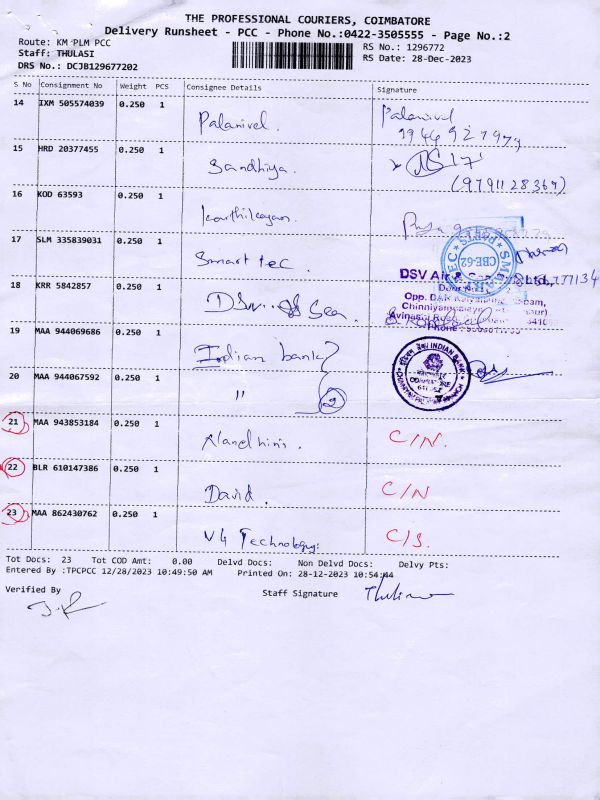 THE PROFESSIONAL COURIERS, COIMBATORE
Delivery Runsheet - PCC - Phone No.:0422-3505555 - Page No.:2
Route: KM PLM PCC
RS No.: 1296772
Staff: THULASI
RS Date: 28-Dec-2023
DRS No.: DCJB129677202
S No Consignment No Weight PCS Consignee Details Signature
14 IXM 505574039 0.250 1 Palanivel. Palanivel
15 HRD 20377455 0.250 1 Sandhiya.
(9791128369)
16 KOD 63593 0.250 1 karthikeyan.
17 SLM 335839031 0.250 1 Smart tec.
CBE-62
18 KRR 5842857 0.250 1 DSV Sea. DSV Air &
Opp.
19 MAA 944069686 0.250 1 Indian bank INDIAN BANK
20 MAA 944067592 0.250 1 " 2
21 MAA 943853184 0.250 1 Nandhini. C/N.
22 BLR 610147386 0.250 1 David. C/N
23 MAA 862430762 0.250 1 V4 Technology. C/S.
Tot Docs: 23 Tot COD Amt: 0.00 Delvd Docs: Non Delvd Docs: Delvy Pts:
Entered By :TPCPCC 12/28/2023 10:49:50 AM Printed On: 28-12-2023 10:54:44
Verified By Staff Signature